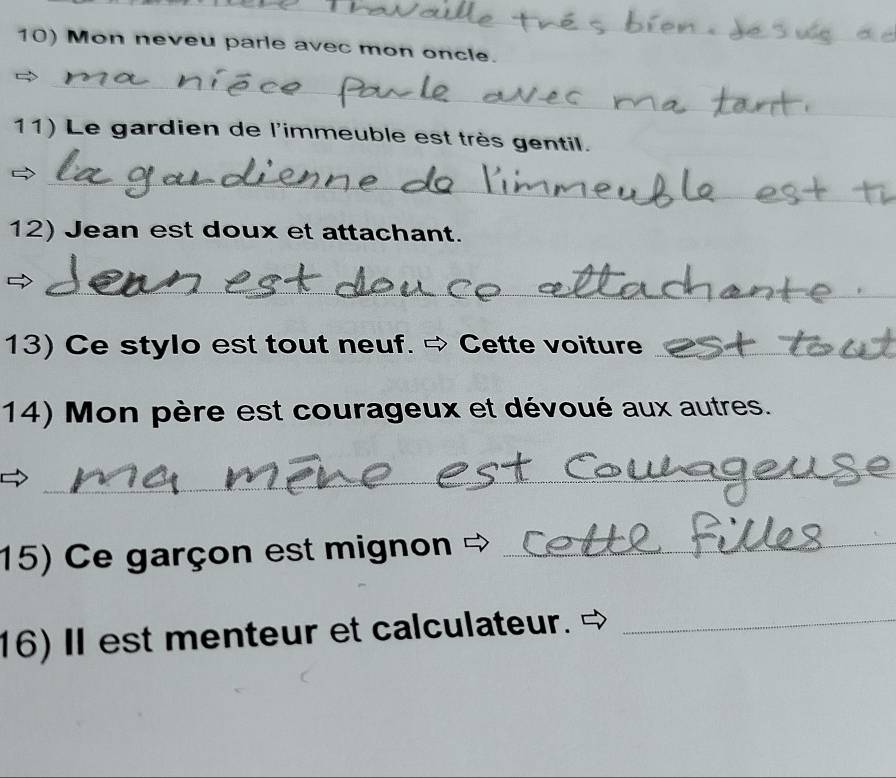 Travaille trés bien. Je suis
10) Mon neveu parle avec mon oncle.
⇨ ma nièce parle avec ma tant.
11) Le gardien de l'immeuble est très gentil.
⇨ la gardienne de l'immeuble est
12) Jean est doux et attachant.
⇨ Jean est douce attachante.
13) Ce stylo est tout neuf. ⇨ Cette voiture est tout
14) Mon père est courageux et dévoué aux autres.
⇨ ma mène est Courageuse
15) Ce garçon est mignon ⇨ cette filles
16) Il est menteur et calculateur. ⇨